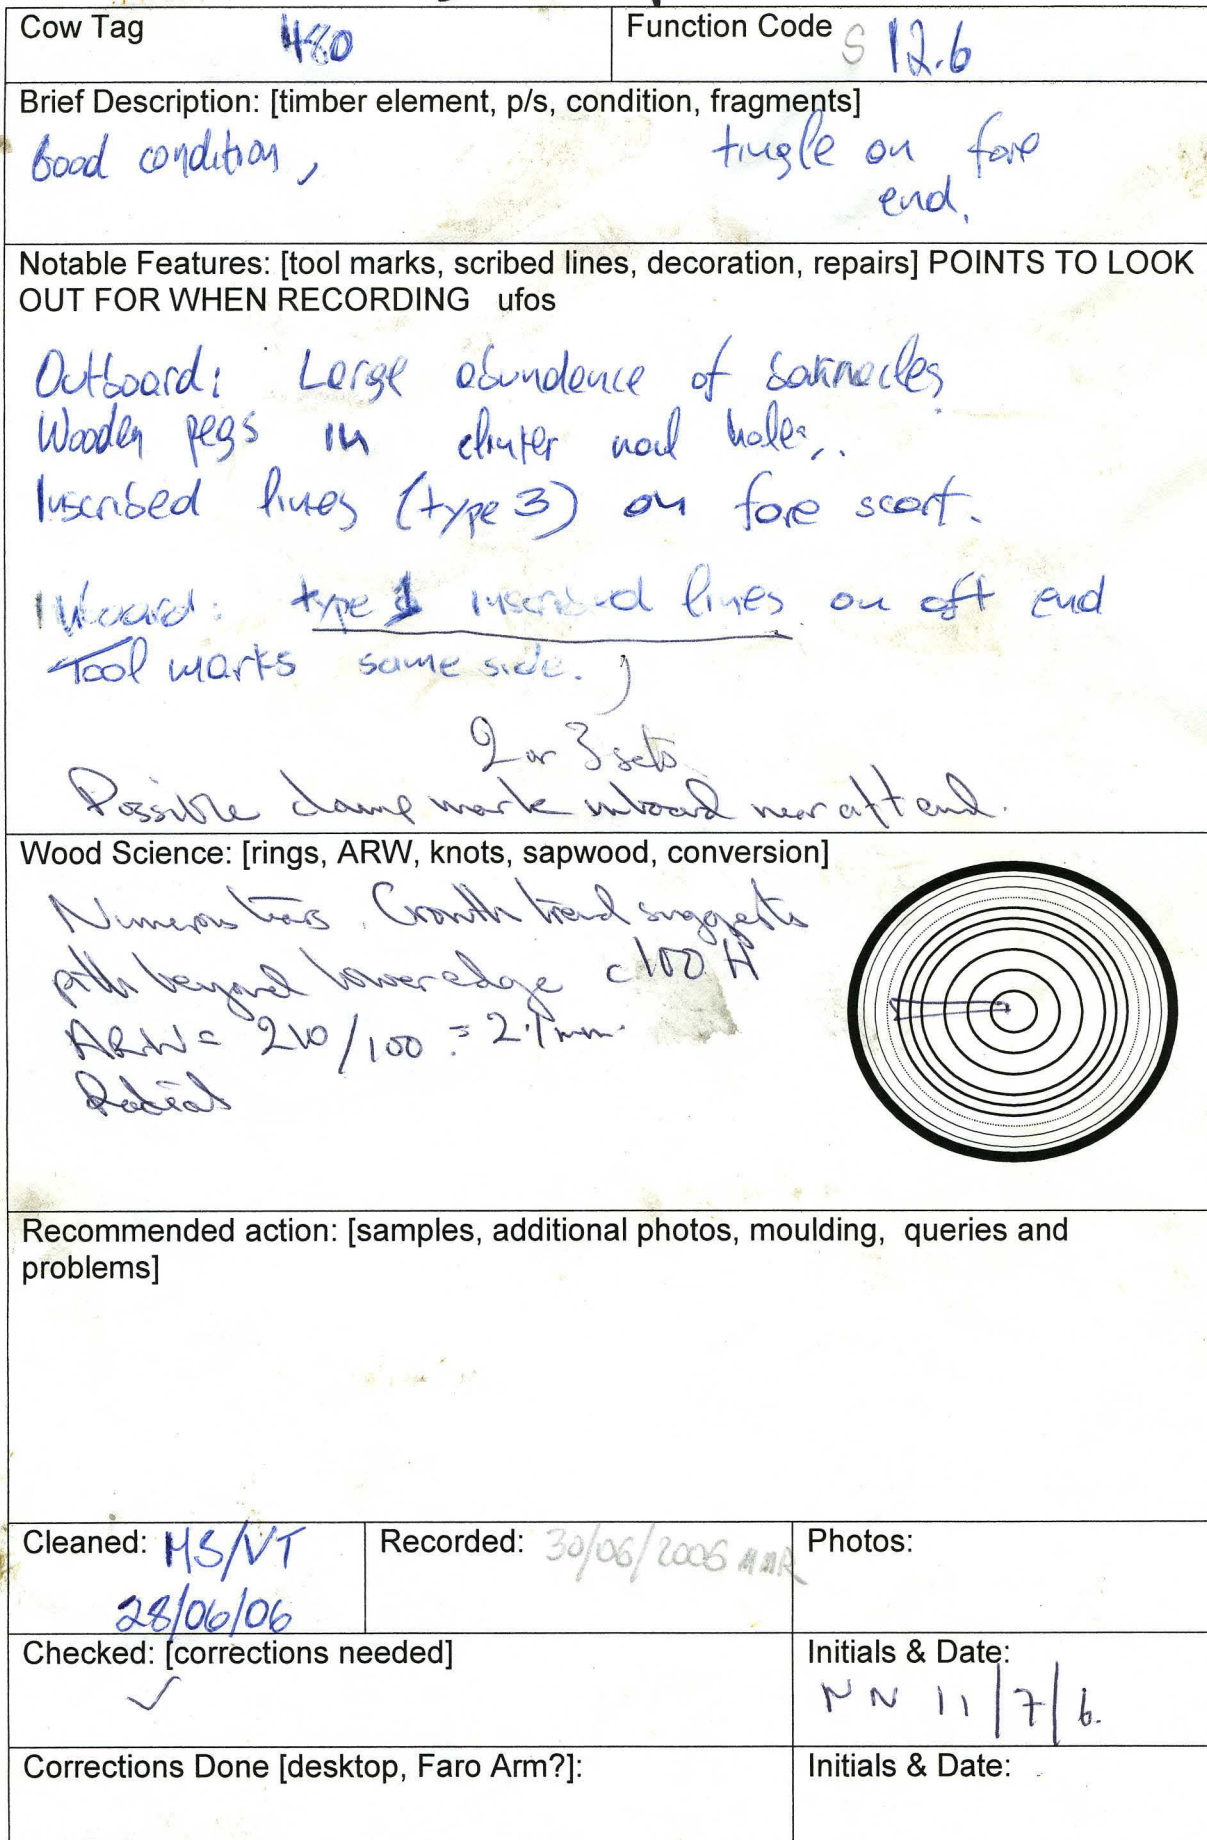 Cow Tag 480
Function Code S 12.6
Brief Description: [timber element, p/s, condition, fragments]
Good condition, tingle on fore
end.
Notable Features: [tool marks, scribed lines, decoration, repairs] POINTS TO LOOK
OUT FOR WHEN RECORDING ufos
Outboard: Large abundance of barnacles
Wooden pegs in clinker nail holes.
Inscribed lines (type 3) on fore scarf.
Inboard: type 1 inscribed lines on aft end
Tool marks same side.
2 or 3 sets
Possible clamp mark inboard near aft end.
Wood Science: [rings, ARW, knots, sapwood, conversion]
Numerous tears. Growth trend suggests
pith beyond lower edge c100 H
ARW = 210/100 = 2.1mm.
Radial
Recommended action: [samples, additional photos, moulding, queries and
problems]
Cleaned: MS/VT
28/06/06
Recorded: 30/06/2006
Photos:
Checked: [corrections needed]
✓
Initials & Date:
NN 11/7/6.
Corrections Done [desktop, Faro Arm?]:
Initials & Date: